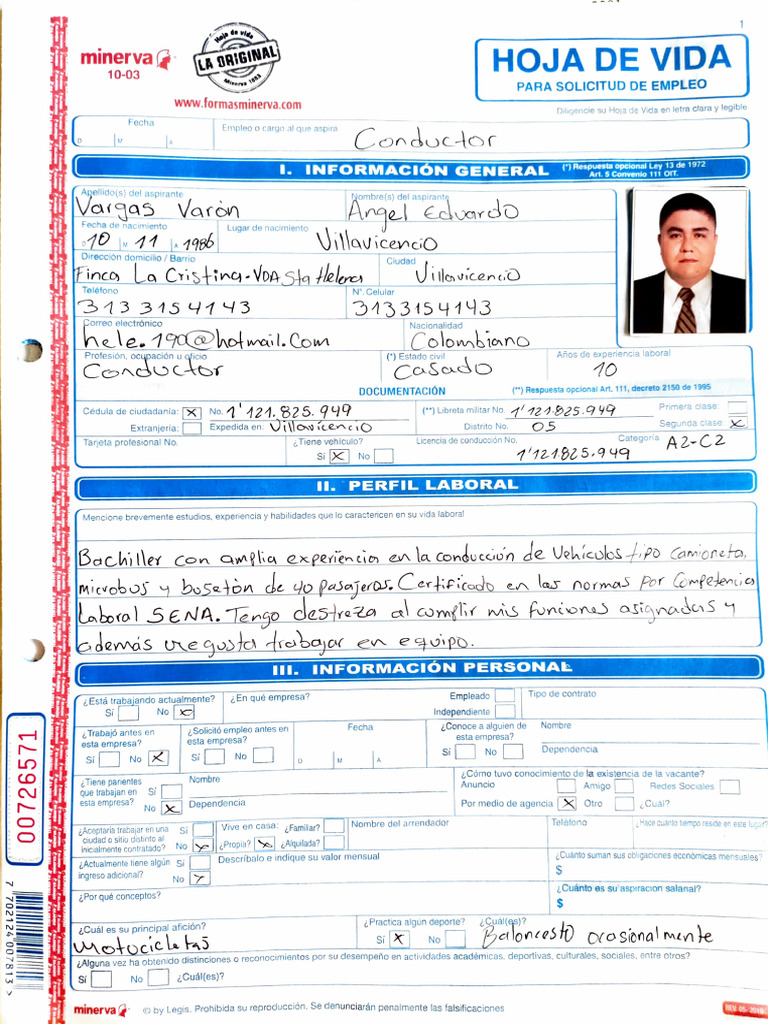 1
minerva
10-03
Hoja de vida
LA ORIGINAL
Minerva 1003
www.formasminerva.com
HOJA DE VIDA
PARA SOLICITUD DE EMPLEO
Diligencie su Hoja de Vida en letra clara y legible
Fecha
D M A
Empleo o cargo al que aspira
Conductor
I. INFORMACIÓN GENERAL
(*) Respuesta opcional Ley 13 de 1972
Art. 5 Convenio 111 OIT.
Apellido(s) del aspirante
Vargas Varón
Nombre(s) del aspirante
Angel Eduardo
Fecha de nacimiento
D 10 M 11 A 1986
Lugar de nacimiento
Villavicencio
Dirección domicilio / Barrio
Finca La Cristina - VDA Sta Helena
Ciudad
Villavicencio
Teléfono
3133154143
N°. Celular
3133154143
Correo electrónico
hele.190@hotmail.Com
Nacionalidad
Colombiano
Profesión, ocupación u oficio
Conductor
(*) Estado civil
Casado
Años de experiencia laboral
10
DOCUMENTACIÓN
(**) Respuesta opcional Art. 111, decreto 2150 de 1995
Cédula de ciudadanía: X No. 1'121.825.949
(**) Libreta militar No. 1'121.825.949
Primera clase:
Extranjería: Expedida en: Villavicencio
Distrito No. 05
Segunda clase: X
Tarjeta profesional No.
¿Tiene vehículo?
Sí X No
Licencia de conducción No.
1'121825.949
Categoría A2-C2
II. PERFIL LABORAL
Mencione brevemente estudios, experiencia y habilidades que lo caractericen en su vida laboral
Bachiller con amplia experiencia en la conducción de Vehículos tipo camioneta,
microbus y busetón de 40 pasajeros. Certificado en las normas por Competencia
Laboral SENA. Tengo destreza al cumplir mis funciones asignadas y
además me gusta trabajar en equipo.
III. INFORMACIÓN PERSONAL
¿Está trabajando actualmente?
Sí No X
¿En qué empresa?
Empleado
Independiente
Tipo de contrato
¿Trabajó antes en
esta empresa?
Sí No X
¿Solicitó empleo antes en
esta empresa?
Sí No
Fecha
D M A
¿Conoce a alguien de
esta empresa?
Sí No
Nombre
Dependencia
¿Tiene parientes
que trabajan en
esta empresa?
Sí
No X
Nombre
Dependencia
¿Cómo tuvo conocimiento de la existencia de la vacante?
Anuncio Amigo Redes Sociales
Por medio de agencia X Otro ¿Cuál?
¿Aceptaría trabajar en una
ciudad o sitio distinto al
inicialmente contratado?
Sí
No X
Vive en casa: ¿Familiar?
¿Propia? X ¿Alquilada?
Nombre del arrendador
Teléfono
¿Hace cuánto tiempo reside en este lugar?
¿Actualmente tiene algún
ingreso adicional?
Sí
No X
Descríbalo e indique su valor mensual
¿Cuánto suman sus obligaciones económicas mensuales?
$
¿Por qué conceptos?
¿Cuánto es su aspiración salarial?
$
¿Cuál es su principal afición?
Motocicletas
¿Practica algún deporte?
Sí X No
¿Cuál(es)?
Baloncesto ocasionalmente
¿Alguna vez ha obtenido distinciones o reconocimientos por su desempeño en actividades académicas, deportivas, culturales, sociales, entre otros?
Sí No ¿Cuál(es)?
minerva
© by Legis. Prohibida su reproducción. Se denunciarán penalmente las falsificaciones
REV. 05-2019
00726571
7 702124 007813 >